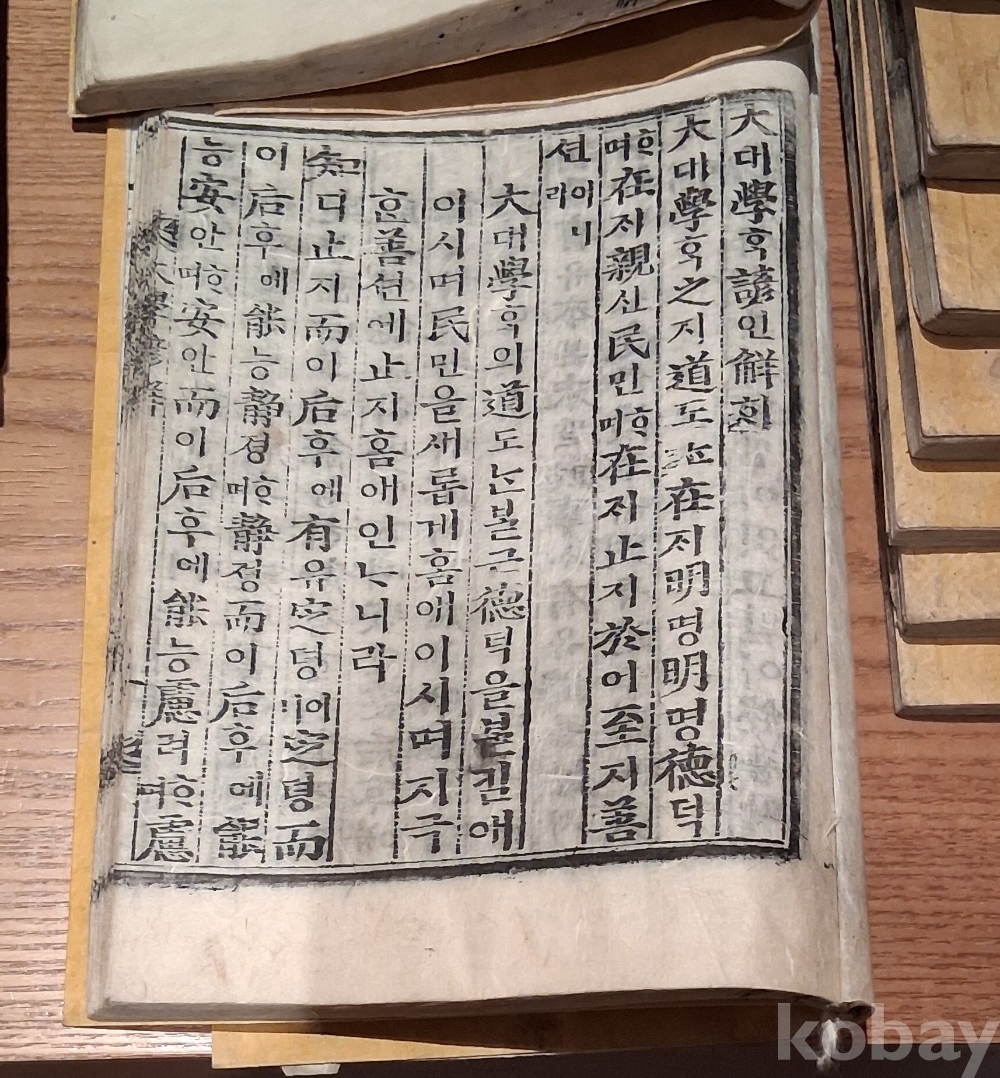 大대學ᄒᆞᆨ諺언解ᄒᆡ
大대學ᄒᆞᆨ之지道도ᄂᆞᆫ在ᄌᆡ明명明명德덕
ᄒᆞ며在ᄌᆡ親신民민ᄒᆞ며在ᄌᆡ止지於어至지善
션이니라
大대學ᄒᆞᆨ의道도ᄂᆞᆫᄇᆞᆯ근德덕을ᄇᆞᆯ김애
이시며民민을새롭게홈애이시며지극
ᄒᆞᆫ善션에止지홈애인ᄂᆞ니라
知디止지而이后후에有유定뎡이니定뎡而
이后후에能능靜졍ᄒᆞ며靜졍而이后후에能
능安안ᄒᆞ며安안而이后후에能능慮려ᄒᆞ며慮
大學諺解
kobay